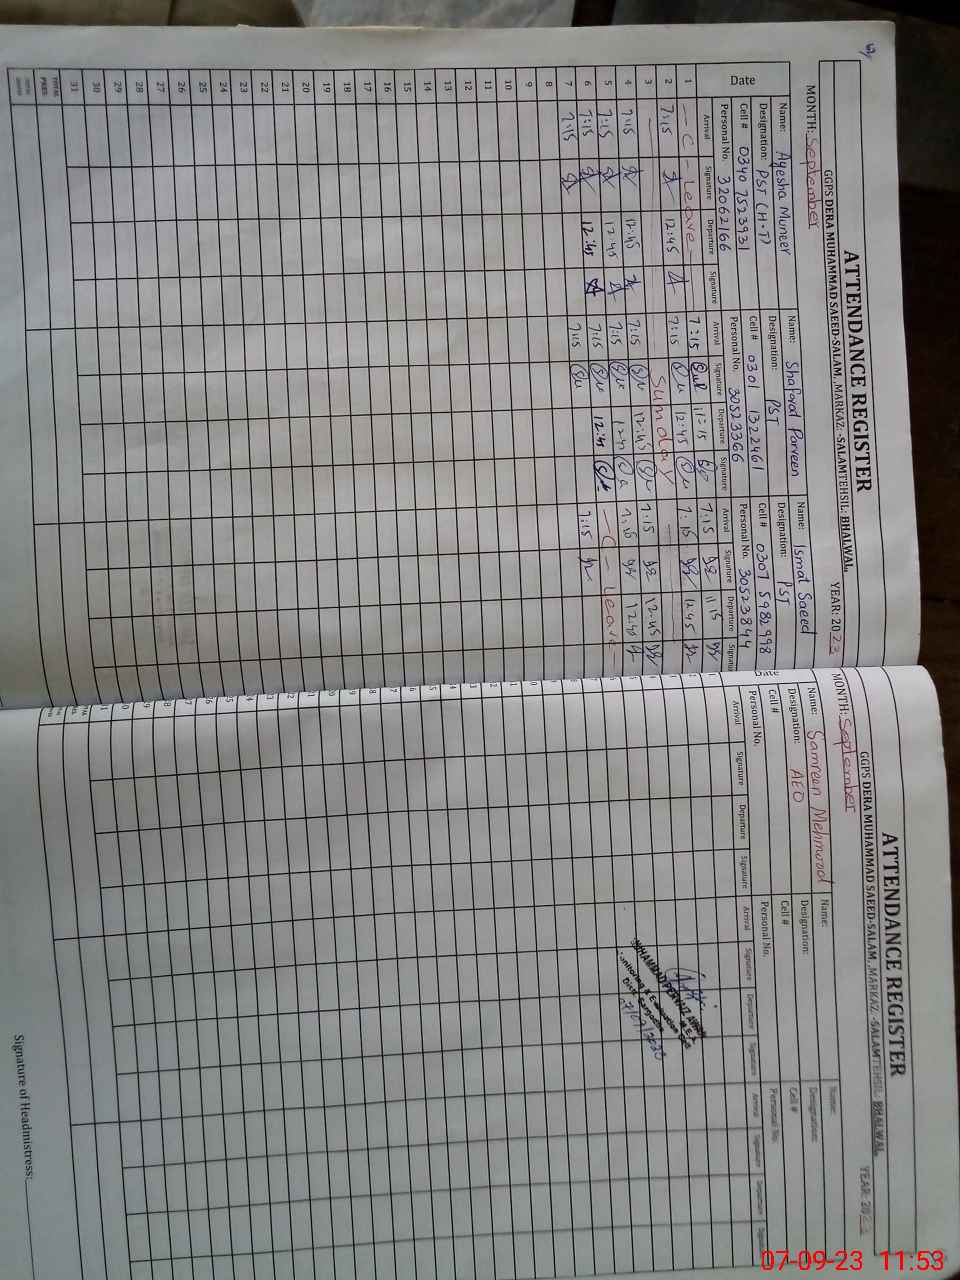 ATTENDANCE REGISTER
GGPS DERA MUHAMMAD SAEED-SALAM, MARKAZ: -SALAMTEHSIL: BHALWAL,
MONTH: September YEAR: 2023
Name: Ayesha Muneer Name: Shafaqat Parveen Name: Ismat Saeed
Designation: PST (H.T) Designation: PST Designation: PST
Cell # 0340 7523931 Cell # 0301 1322461 Cell # 0307 5982998
Personal No. 32062166 Personal No. 30523366 Personal No. 30523844
Date Arrival Signature Departure Signature Arrival Signature Departure Signature Arrival Signature Departure Signatu
1 — C - Leave - 7:15 11:15 7:15 11:15
2 7:15 12:45 7:15 12:45 7:15 12:45
3 Sunday
4 7:15 12:45 7:15 12:45 7:15 12:45
5 7:15 12:45 7:15 12:45 7:15 12:45
6 7:15 12:45 7:15 12:45 — C - Leave -
7 7:15 7:15 7:15
8
9
10
11
12
13
14
15
16
17
18
19
20
21
22
23
24
25
26
27
28
29
30
31
TOTAL PRES:
ATTENDANCE REGISTER
GGPS DERA MUHAMMAD SAEED-SALAM, MARKAZ: -SALAMTEHSIL: BHALWAL,
MONTH: September YEAR: 2023
Name: Samreen Mehmood Name: Name:
Designation: AEO Designation: Designation:
Cell # Cell # Cell #
Personal No. Personal No. Personal No.
Date Arrival Signature Departure Signature Arrival Signature Departure Signature Arrival Signature Departure Signatu
MUHAMMAD PERVAIZ
Monitoring & Evaluation
Distt. Sargodha
Signature of Headmistress:
07-09-23 11:53